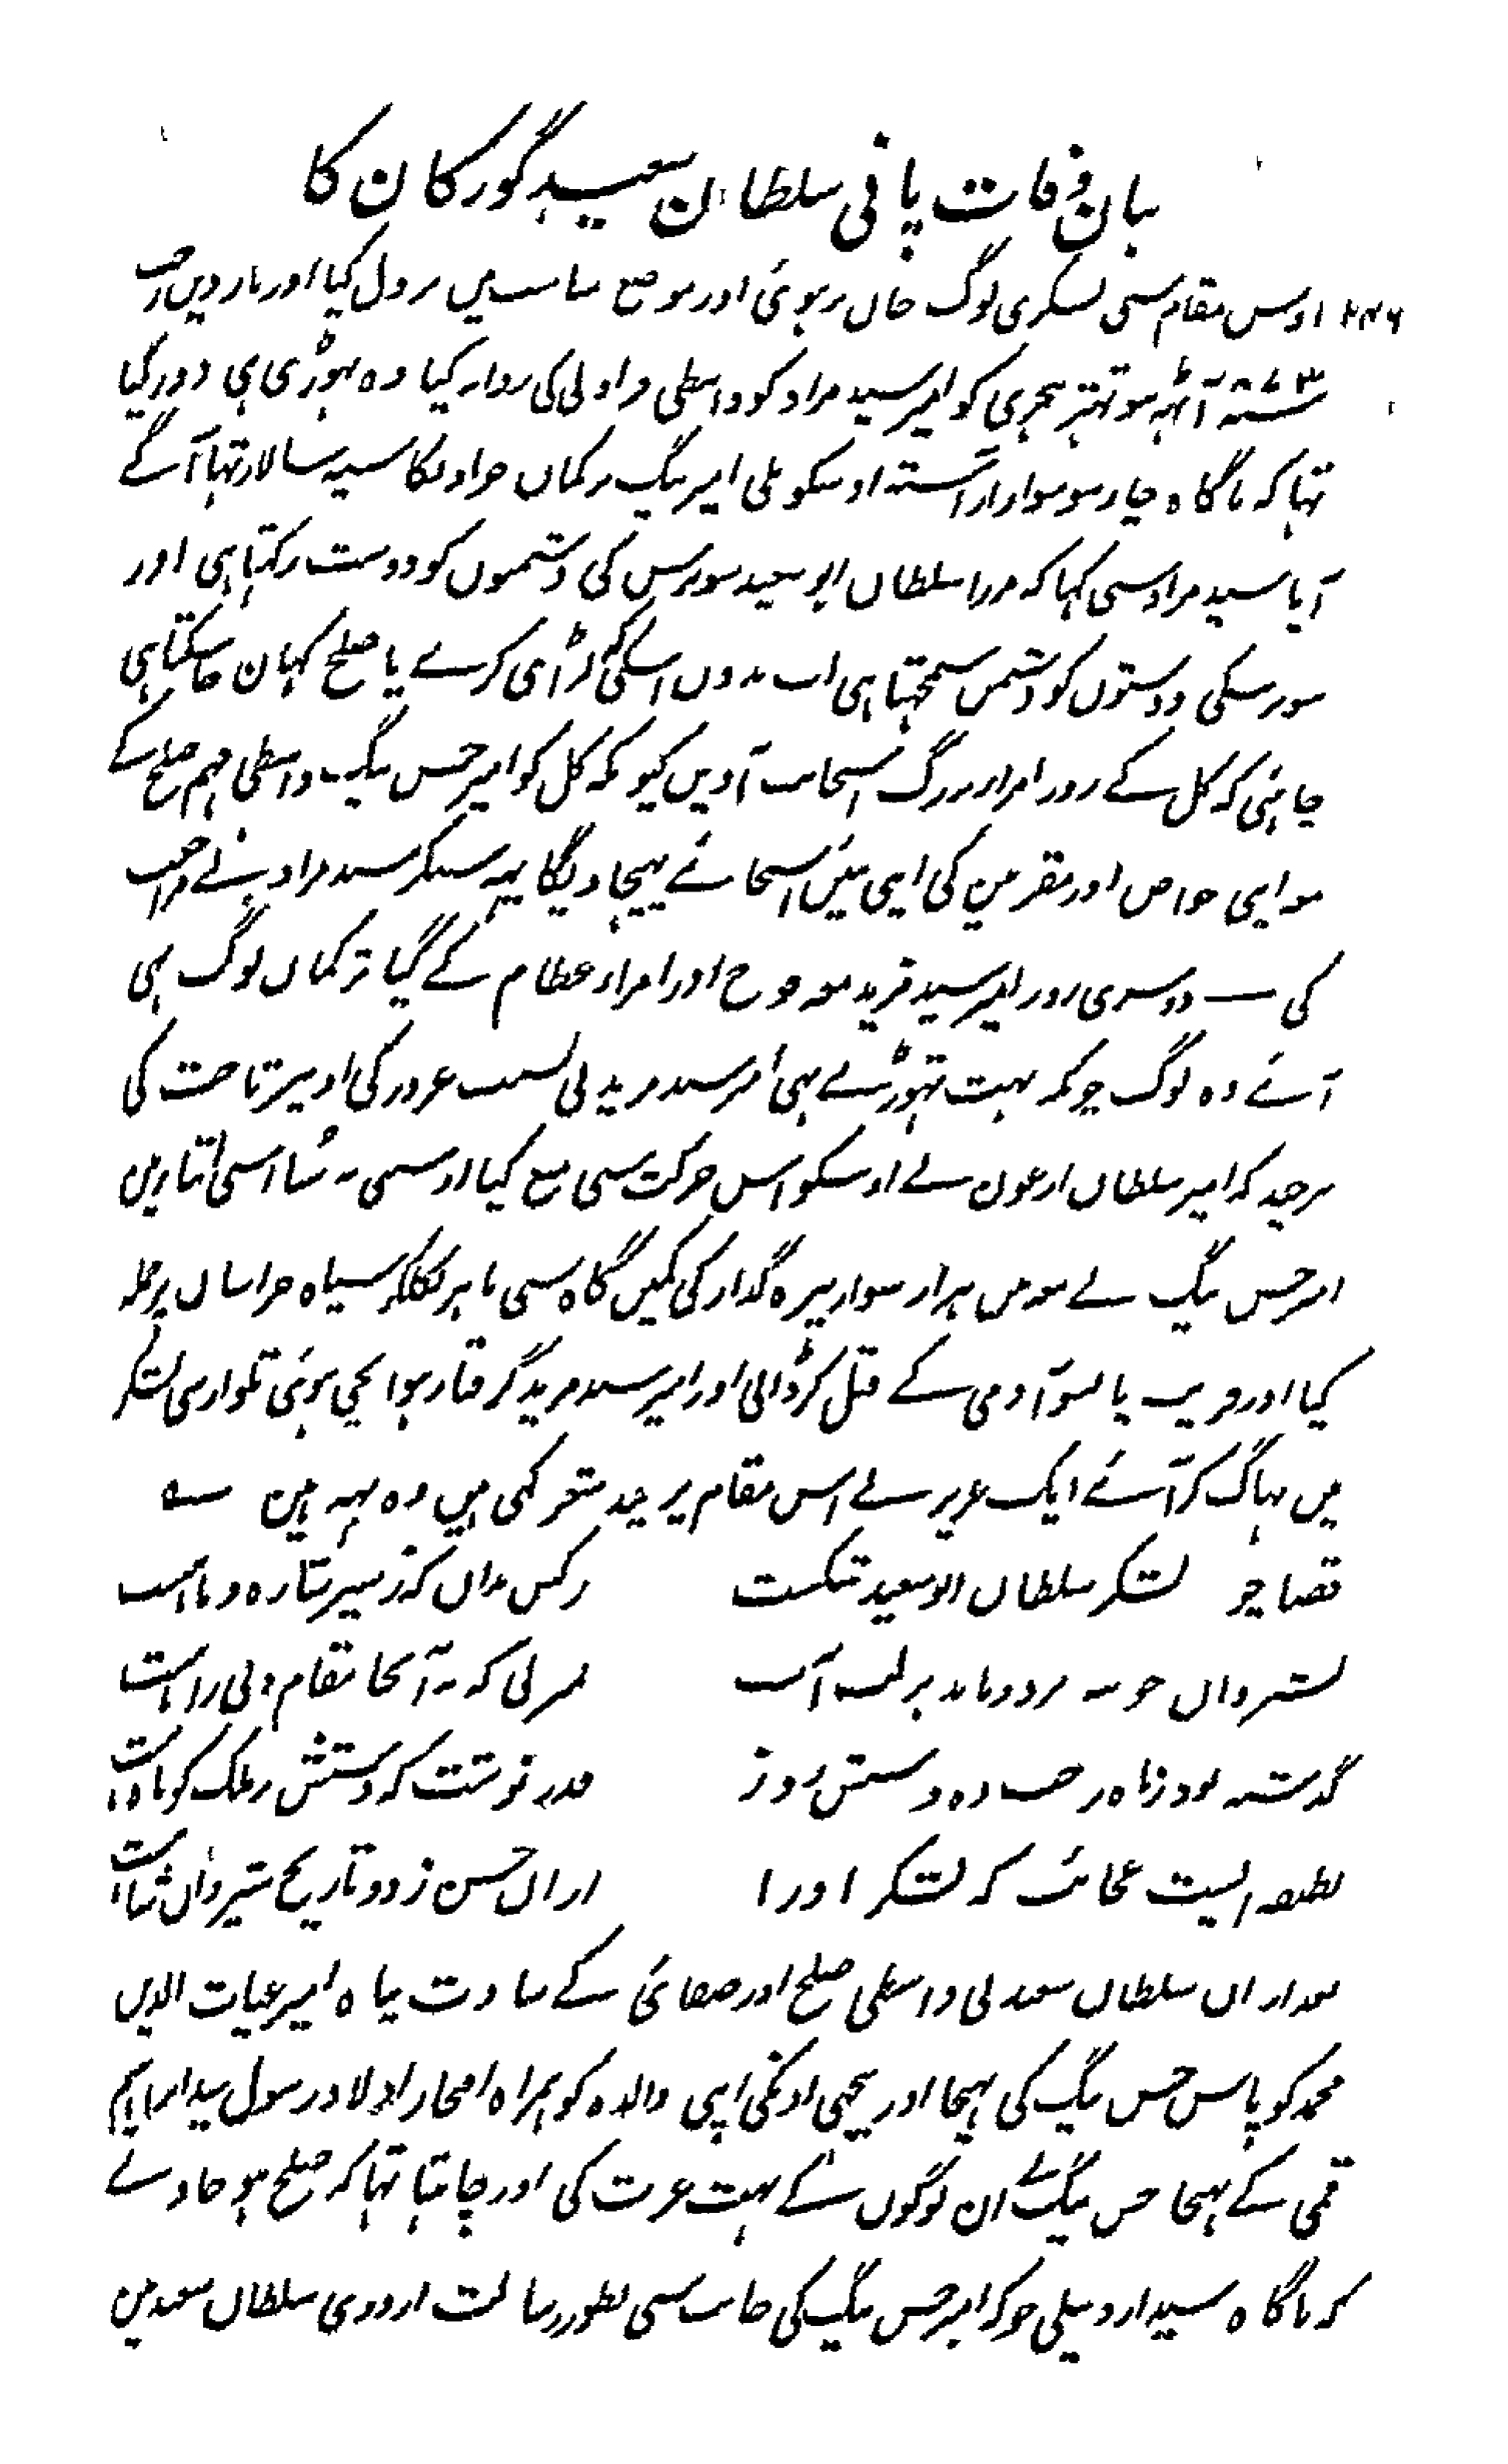 بیان وفات پانی سلطان سعید گورکان کا
۲۴۶ اوس مقام سی لشکری لوگ خان پر ہوئی اور موضع میں نزول کیا اور بارویں رجب
۸۷۳ سنہ آٹہہ سو تہتر ہجری کو امیر سید مراد کو واسطی قراولی کی روانہ کیا وہ تہوڑی ہی دور گیا
تہا کہ ناگاہ چار سو سوار آراستہ اوسکو ملی امیر بیگ ترکمان جو اونکا سپہ سالار تہا آگے
آیا سید مراد سی کہا کہ مرزا سلطان ابو سعید سو برس کی دشمنوں کو دوست رکہتا ہی اور
سو برسکی دوستوں کو دشمن سمجہتا ہی اب بدوں اسکی کہ لڑائی کرے یا صلح کہان جا سکتا ہی
چاہئی کہ کل کے روز امراء بزرگ اسجانب آویں کیونکہ کل کو امیر حسن بیگ واسطی مہم صلح کے
مع اپنی خواص اور مقربین کی اپنی تئیں اسجائے پہنچاویگا یہہ سنکر سید مراد نے مراجعت
کی — دوسری روز امیر سید فرید مع فوج اور امراء عظام کے گیا ترکمان لوگ بہی
آئے وہ لوگ چونکہ بہت تہوڑے تہی امیر سید فرید نی بسبب غرور کی اونپر تاخت کی
ہر چند کہ امیر سلطان ارغون نے اوسکو اس حرکت سی منع کیا اوسی نہ سُنا اسی اثنا میں
امیر حسن بیگ نے مع ہزار سوار نیزہ گذار کی کمین گاہ سی باہر نکلکر سپاہ خراسان پر حملہ
کیا اور قریب پانسو آدمی کے قتل کر ڈالی اور امیر سید فرید گرفتار ہوا بچی ہوئی تلوار سی لشکر
میں بہاگ کر آئے ایک عزیز نے اس مقام پر چند شعر کہی ہیں وہ یہہ ہین ؎
قضا چو لشکر سلطان ابو سعید شکست
ز کس مدان کہ ز سیر ستارہ و ماہ است
بشیروان چو سہ فرد ماند بر لب آب
گذشتہ بود ز ماہ رجب دہ و شش روز
قدر نوشت کہ دستش ز ملک کوتاہ است
لطیفہ ایست عجائب کہ لشکر او را
ازان حسن زد و تاریخ شیروان شاہ است
بعد ازان سلطان سعید نی واسطی صلح اور صفائی کے سادت پناہ امیر غیاث الدین
محمد کو پاس حسن بیگ کی بہیجا اور پیچہی اونکی اپنی والدہ کو ہمراہ افتخار اولاد رسول سید ابراہیم
قمی کے بہیجا حسن بیگ نے ان لوگوں کے بہت عزت کی اور چاہتا تہا کہ صلح ہو جاوے
کہ ناگاہ سید اردبیلی جو کہ امیر حسن بیگ کی جانب سی بطور رسالت اردوی سلطان سعید مین